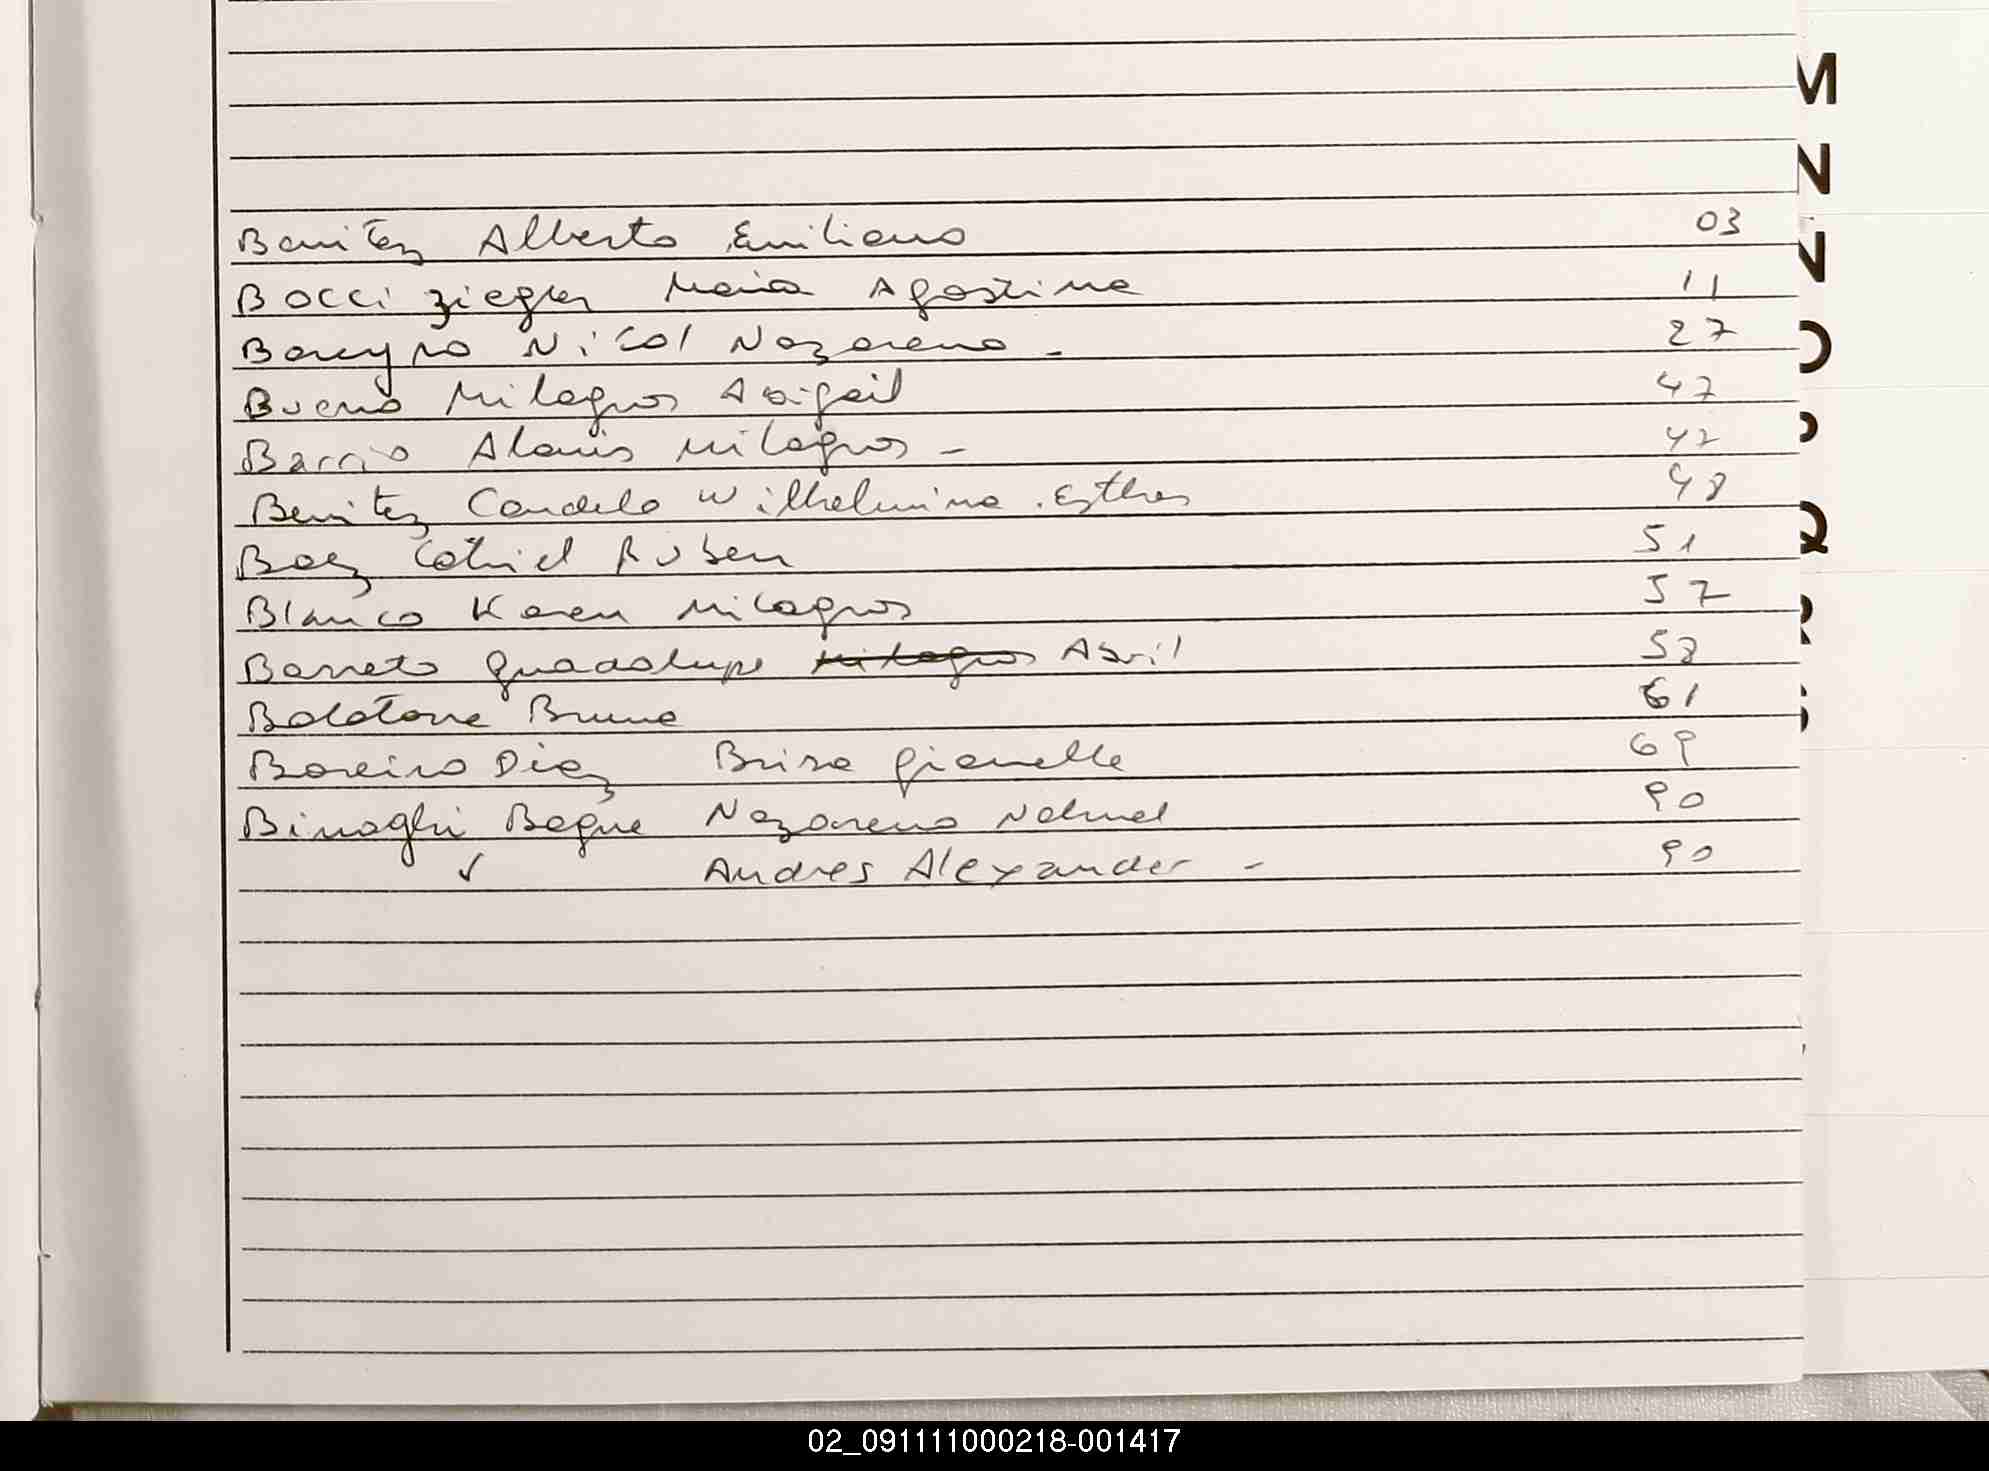 M
N
Ñ
O
P
Q
R
S
Benitez Alberto Emiliano 03
Bocci Ziegler Maria Agostina 11
Bareyro Nicol Nazareno - 27
Bueno Milagros Abigail 47
Barrio Alanis Milagros - 47
Benitez Candela Wilhelmina Esther 48
Baez Catriel Ruben 51
Blanco Karen Milagros 57
Barreto Guadalupe Milagros Abril 58
Balatone Bruno 61
Bareiro Diaz Brisa Gianella 69
Binaghi Bogue Nazareno Nahuel 90
Andres Alexander - 90
02_091111000218-001417